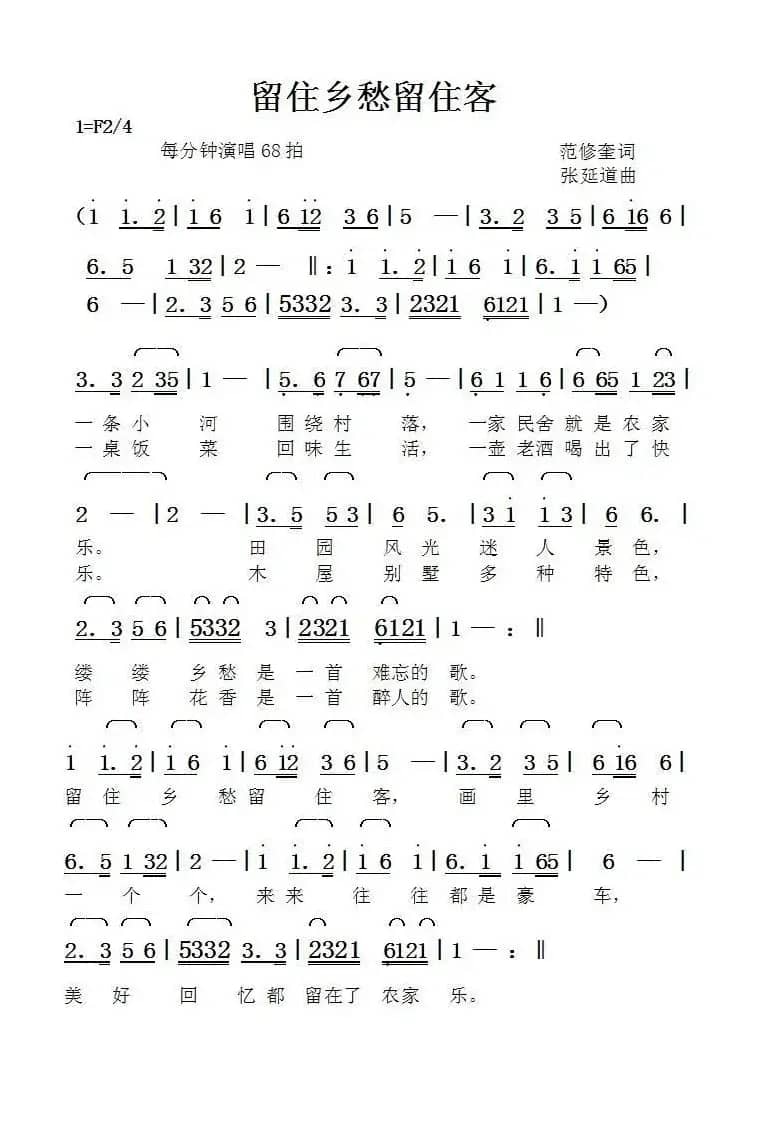 留住乡愁留住客
1=F2/4
每分钟演唱68拍 范修奎词
张延道曲
（1 1. 2 | 1 6 1 | 6 12 3 6 | 5 — | 3. 2 3 5 | 6 16 6 |
6. 5 1 32 | 2 — ‖: 1 1. 2 | 1 6 1 | 6. 1 1 65 |
6 — | 2. 3 5 6 | 5332 3. 3 | 2321 6121 | 1 —）
3. 3 2 35 | 1 — | 5. 6 7 67 | 5 — | 6 1 1 6 | 6 65 1 23 |
一 条 小 河 围 绕 村 落， 一家 民舍 就 是 农 家
一 桌 饭 菜 回 味 生 活， 一壶 老酒 喝 出 了 快
2 — | 2 — | 3. 5 5 3 | 6 5. | 3 1 1 3 | 6 6. |
乐。 田 园 风 光 迷 人 景 色，
乐。 木 屋 别 墅 多 种 特 色，
2. 3 5 6 | 5332 3 | 2321 6121 | 1 — :‖
缕 缕 乡 愁 是 一 首 难忘的 歌。
阵 阵 花 香 是 一 首 醉人的 歌。
1 1. 2 | 1 6 1 | 6 12 3 6 | 5 — | 3. 2 3 5 | 6 16 6 |
留 住 乡 愁 留 住 客， 画 里 乡 村
6. 5 1 32 | 2 — | 1 1. 2 | 1 6 1 | 6. 1 1 65 | 6 — |
一 个 个， 来 来 往 往 都 是 豪 车，
2. 3 5 6 | 5332 3. 3 | 2321 6121 | 1 — :‖
美 好 回 忆 都 留在了 农家 乐。